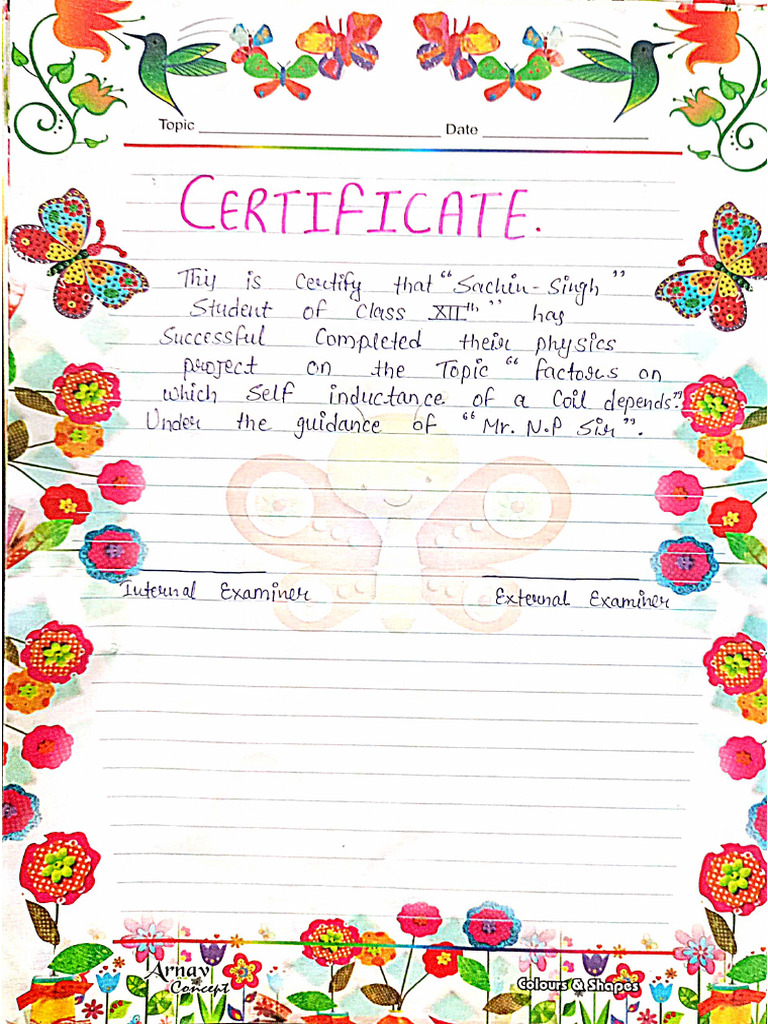 Topic ____________ Date ____________
CERTIFICATE.
This is Certify that "Sachin-Singh"
Student of Class XIIth" has
Successful Completed their physics
project on the Topic "factors on
which Self inductance of a Coil depends".
Under the guidance of "Mr. N.P Sir".
Internal Examiner External Examiner
Arnav
Concept
Colours & Shapes